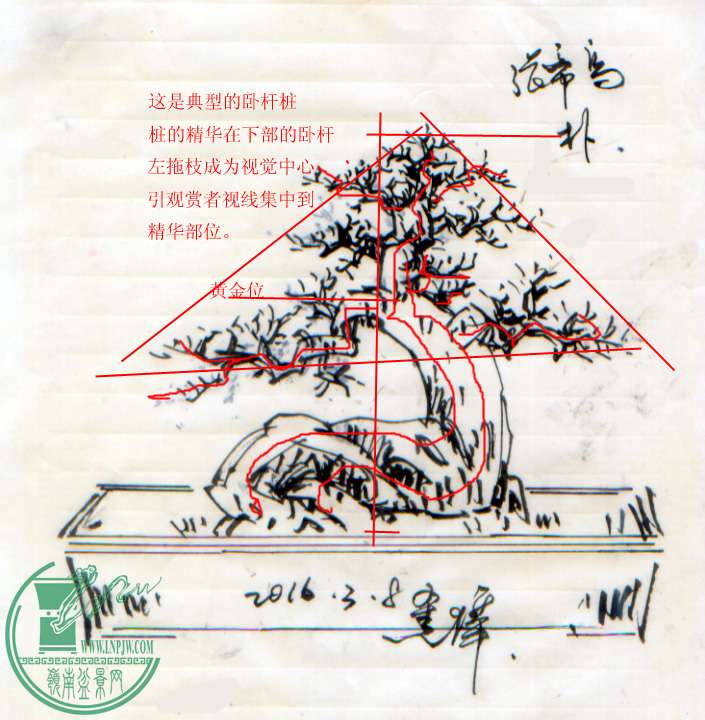 这是典型的卧杆桩
桩的精华在下部的卧杆
左拖枝成为视觉中心
引观赏者视线集中到
精华部位。
黄金位
朴
2016.3.8
WWW.LNPJW.COM
嶺南盆景网